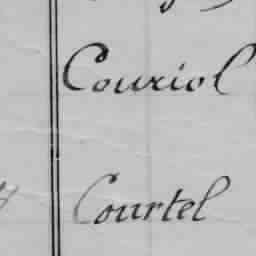 Couriol
Courtel